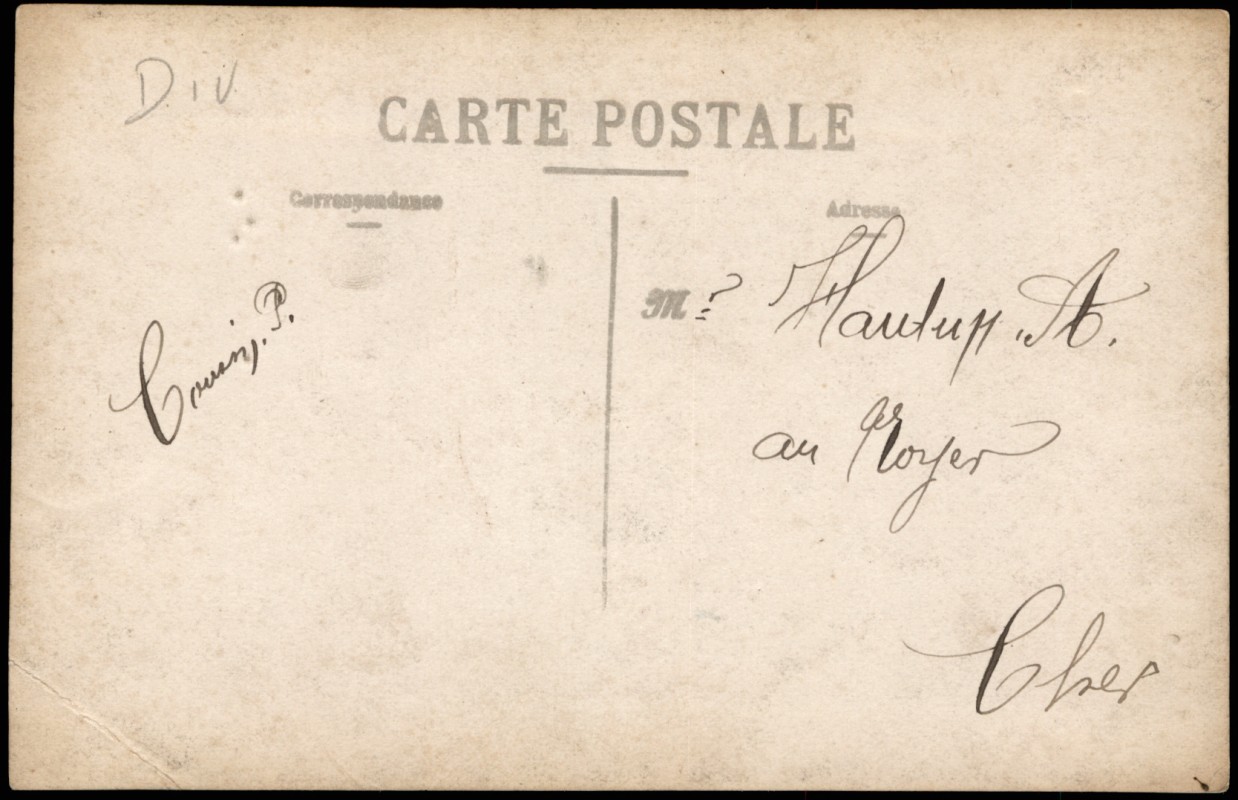 Div
CARTE POSTALE
Correspondance
Adresse
Cousin. P.
M r A.
au Noyer
Cher